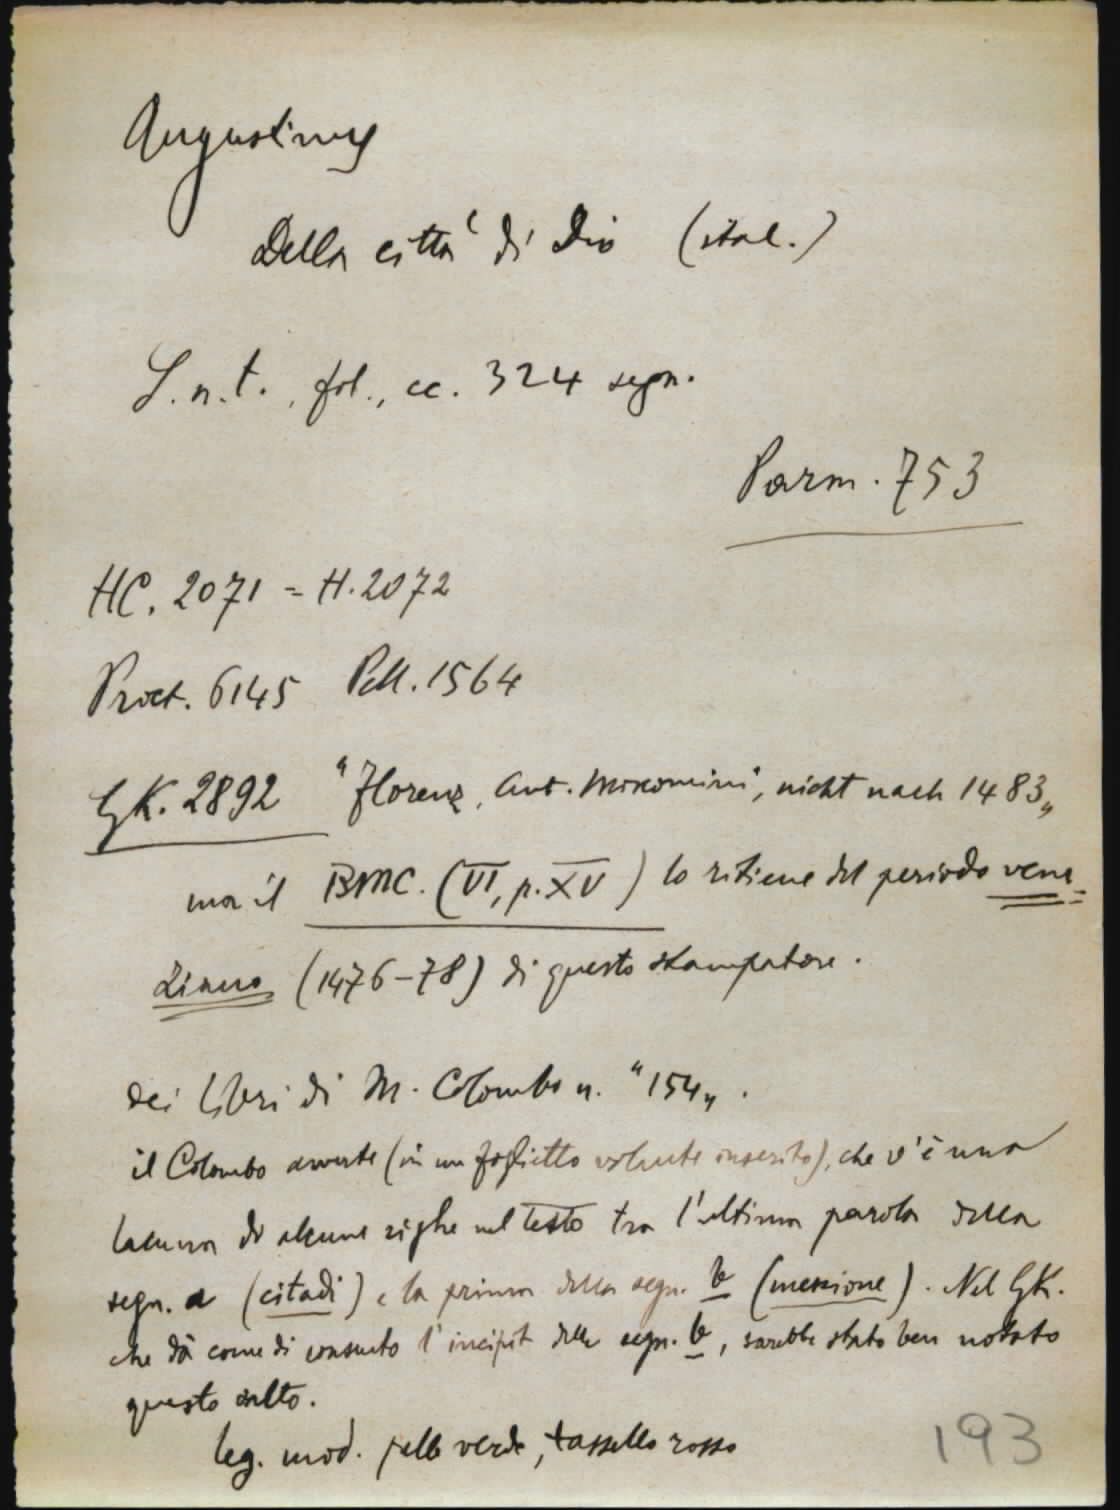 Augustinus
Della città di Dio (ital.)
S.n.t., fol., cc. 324 segn.
Parm. 753
HC. 2071 = H. 2072
Proct. 6145 Pell. 1564
GK. 2892 "Florenz, Ant. Miscomini", nicht nach 1483„
ma il BMC. (VI, p. XV) lo ritiene del periodo vene-
ziano (1476-78) di questo stampatore.
dei libri di M. Colombo n. "154„.
il Colombo avverte (in un foglietto volante inserito), che v'è una
lacuna di alcune righe nel testo tra l'ultima parola della
segn. a (citadi) e la prima della segn. b (menzione). Nel GK.
che dà come di consueto l'incipit della segn. b, sarebbe stato ben notato
questo salto.
leg. mod. pelle verde, tassello rosso
193